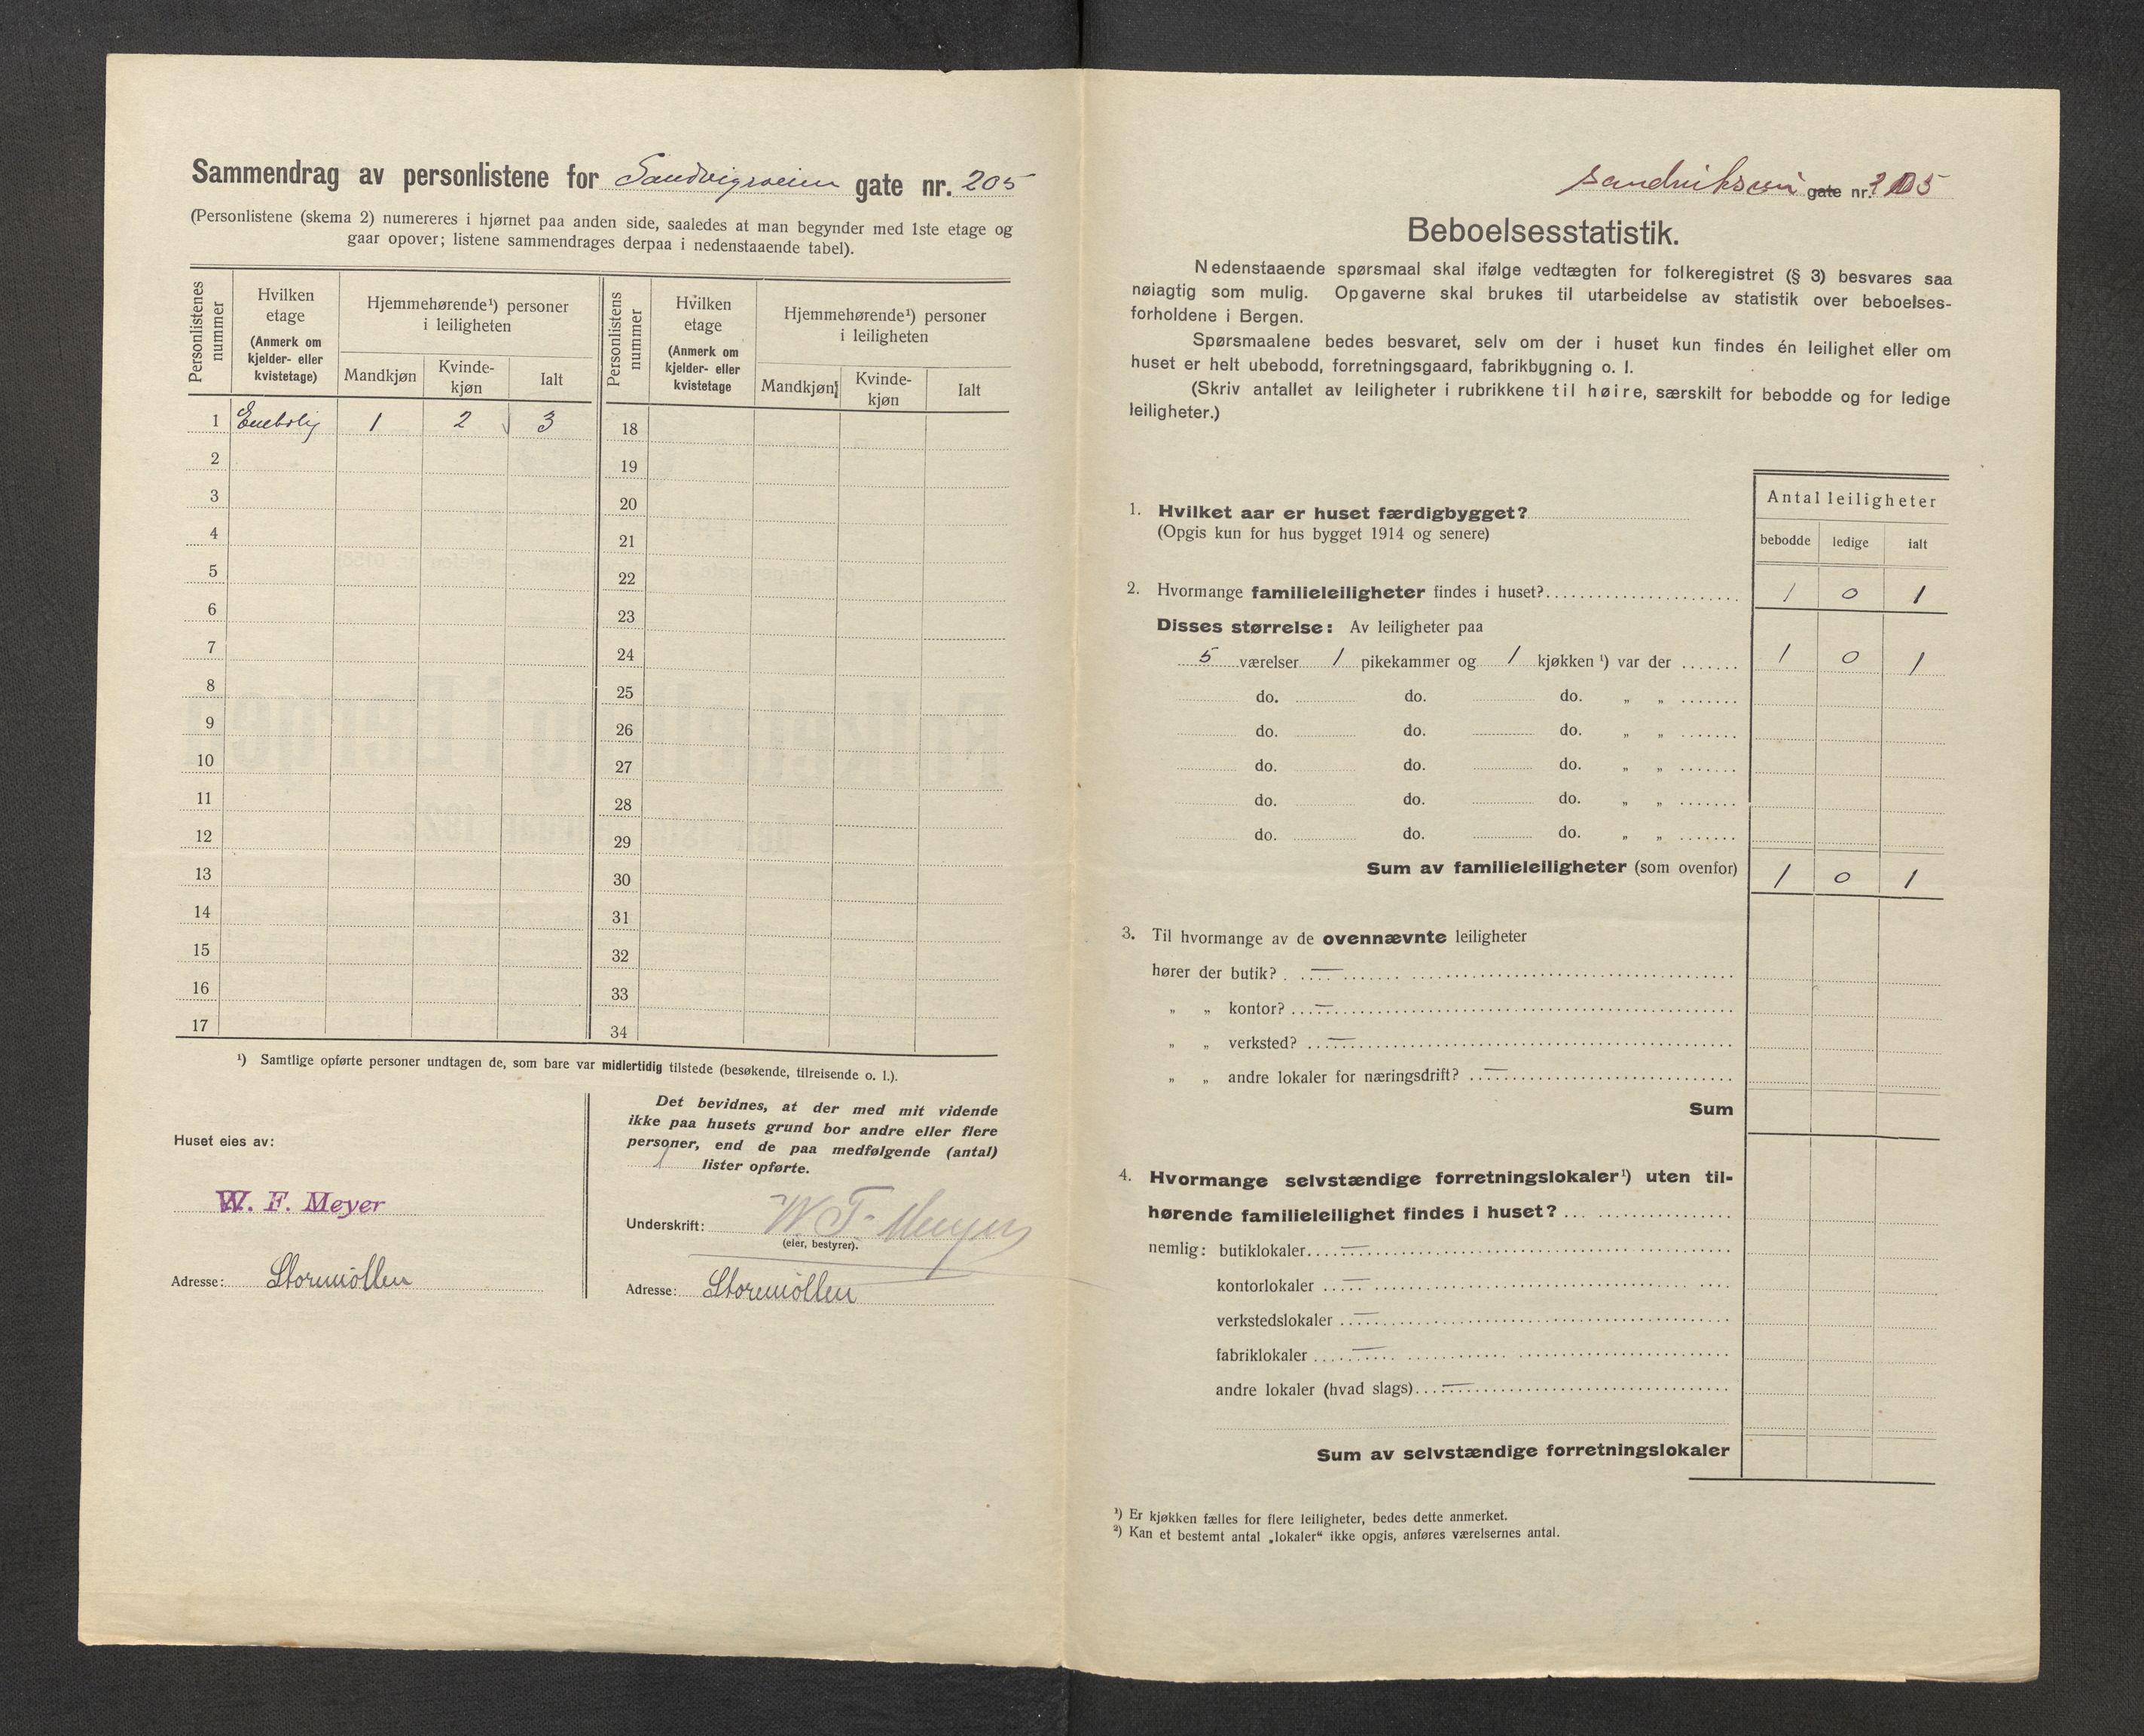 Sammendrag av personlistene for Sandvigsveien gate nr. 205
(Personlistene (skema 2) numereres i hjørnet paa anden side, saaledes at man begynder med 1ste etage og
gaar opover; listene sammendrages derpaa i nedenstaaende tabel).
Personlistenes nummer
Hvilken etage
(Anmerk om kjelder- eller kvistetage)
Hjemmehørende¹) personer i leiligheten
Mandkjøn Kvindekjøn Ialt
Personlistens nummer
Hvilken etage
(Anmerk om kjelder- eller kvistetage
Hjemmehørende¹) personer i leiligheten
Mandkjøn Kvindekjøn Ialt
1 Enebolig 1 2 3
2
3
4
5
6
7
8
9
10
11
12
13
14
15
16
17
18
19
20
21
22
23
24
25
26
27
28
29
30
31
32
33
34
¹) Samtlige opførte personer undtagen de, som bare var midlertidig tilstede (besøkende, tilreisende o. l.).
Huset eies av:
W. F. Meyer
Adresse: Storemöllen
Det bevidnes, at der med mit vidende
ikke paa husets grund bor andre eller flere
personer, end de paa medfølgende (antal)
1 lister opførte.
Underskrift: W. F. Meyer
(eier, bestyrer).
Adresse: Storemöllen
gate nr. 205
Beboelsesstatistik.
Nedenstaaende spørsmaal skal ifølge vedtægten for folkeregistret (§ 3) besvares saa
nøiagtig som mulig. Opgaverne skal brukes til utarbeidelse av statistik over beboelses-
forholdene i Bergen.
Spørsmaalene bedes besvaret, selv om der i huset kun findes én leilighet eller om
huset er helt ubebodd, forretningsgaard, fabrikbygning o. l.
(Skriv antallet av leiligheter i rubrikkene til høire, særskilt for bebodde og for ledige
leiligheter.)
Antal leiligheter
bebodde ledige ialt
1. Hvilket aar er huset færdigbygget?
(Opgis kun for hus bygget 1914 og senere)
2. Hvormange familieleiligheter findes i huset? 1 0 1
Disses størrelse: Av leiligheter paa
5 værelser 1 pikekammer og 1 kjøkken ¹) var der 1 0 1
do. do. do. „ „
do. do. do. „ „
do. do. do. „ „
do. do. do. „ „
do. do. do. „ „
Sum av familieleiligheter (som ovenfor) 1 0 1
3. Til hvormange av de ovennævnte leiligheter
hører der butik? —
„ „ kontor? —
„ „ verksted? —
„ „ andre lokaler for næringsdrift? —
Sum
4. Hvormange selvstændige forretningslokaler¹) uten til-
hørende familieleilighet findes i huset?
nemlig: butiklokaler —
kontorlokaler —
verkstedslokaler —
fabriklokaler —
andre lokaler (hvad slags) —
Sum av selvstændige forretningslokaler
¹) Er kjøkken fælles for flere leiligheter, bedes dette anmerket.
²) Kan et bestemt antal „lokaler“ ikke opgis, anføres værelsernes antal.